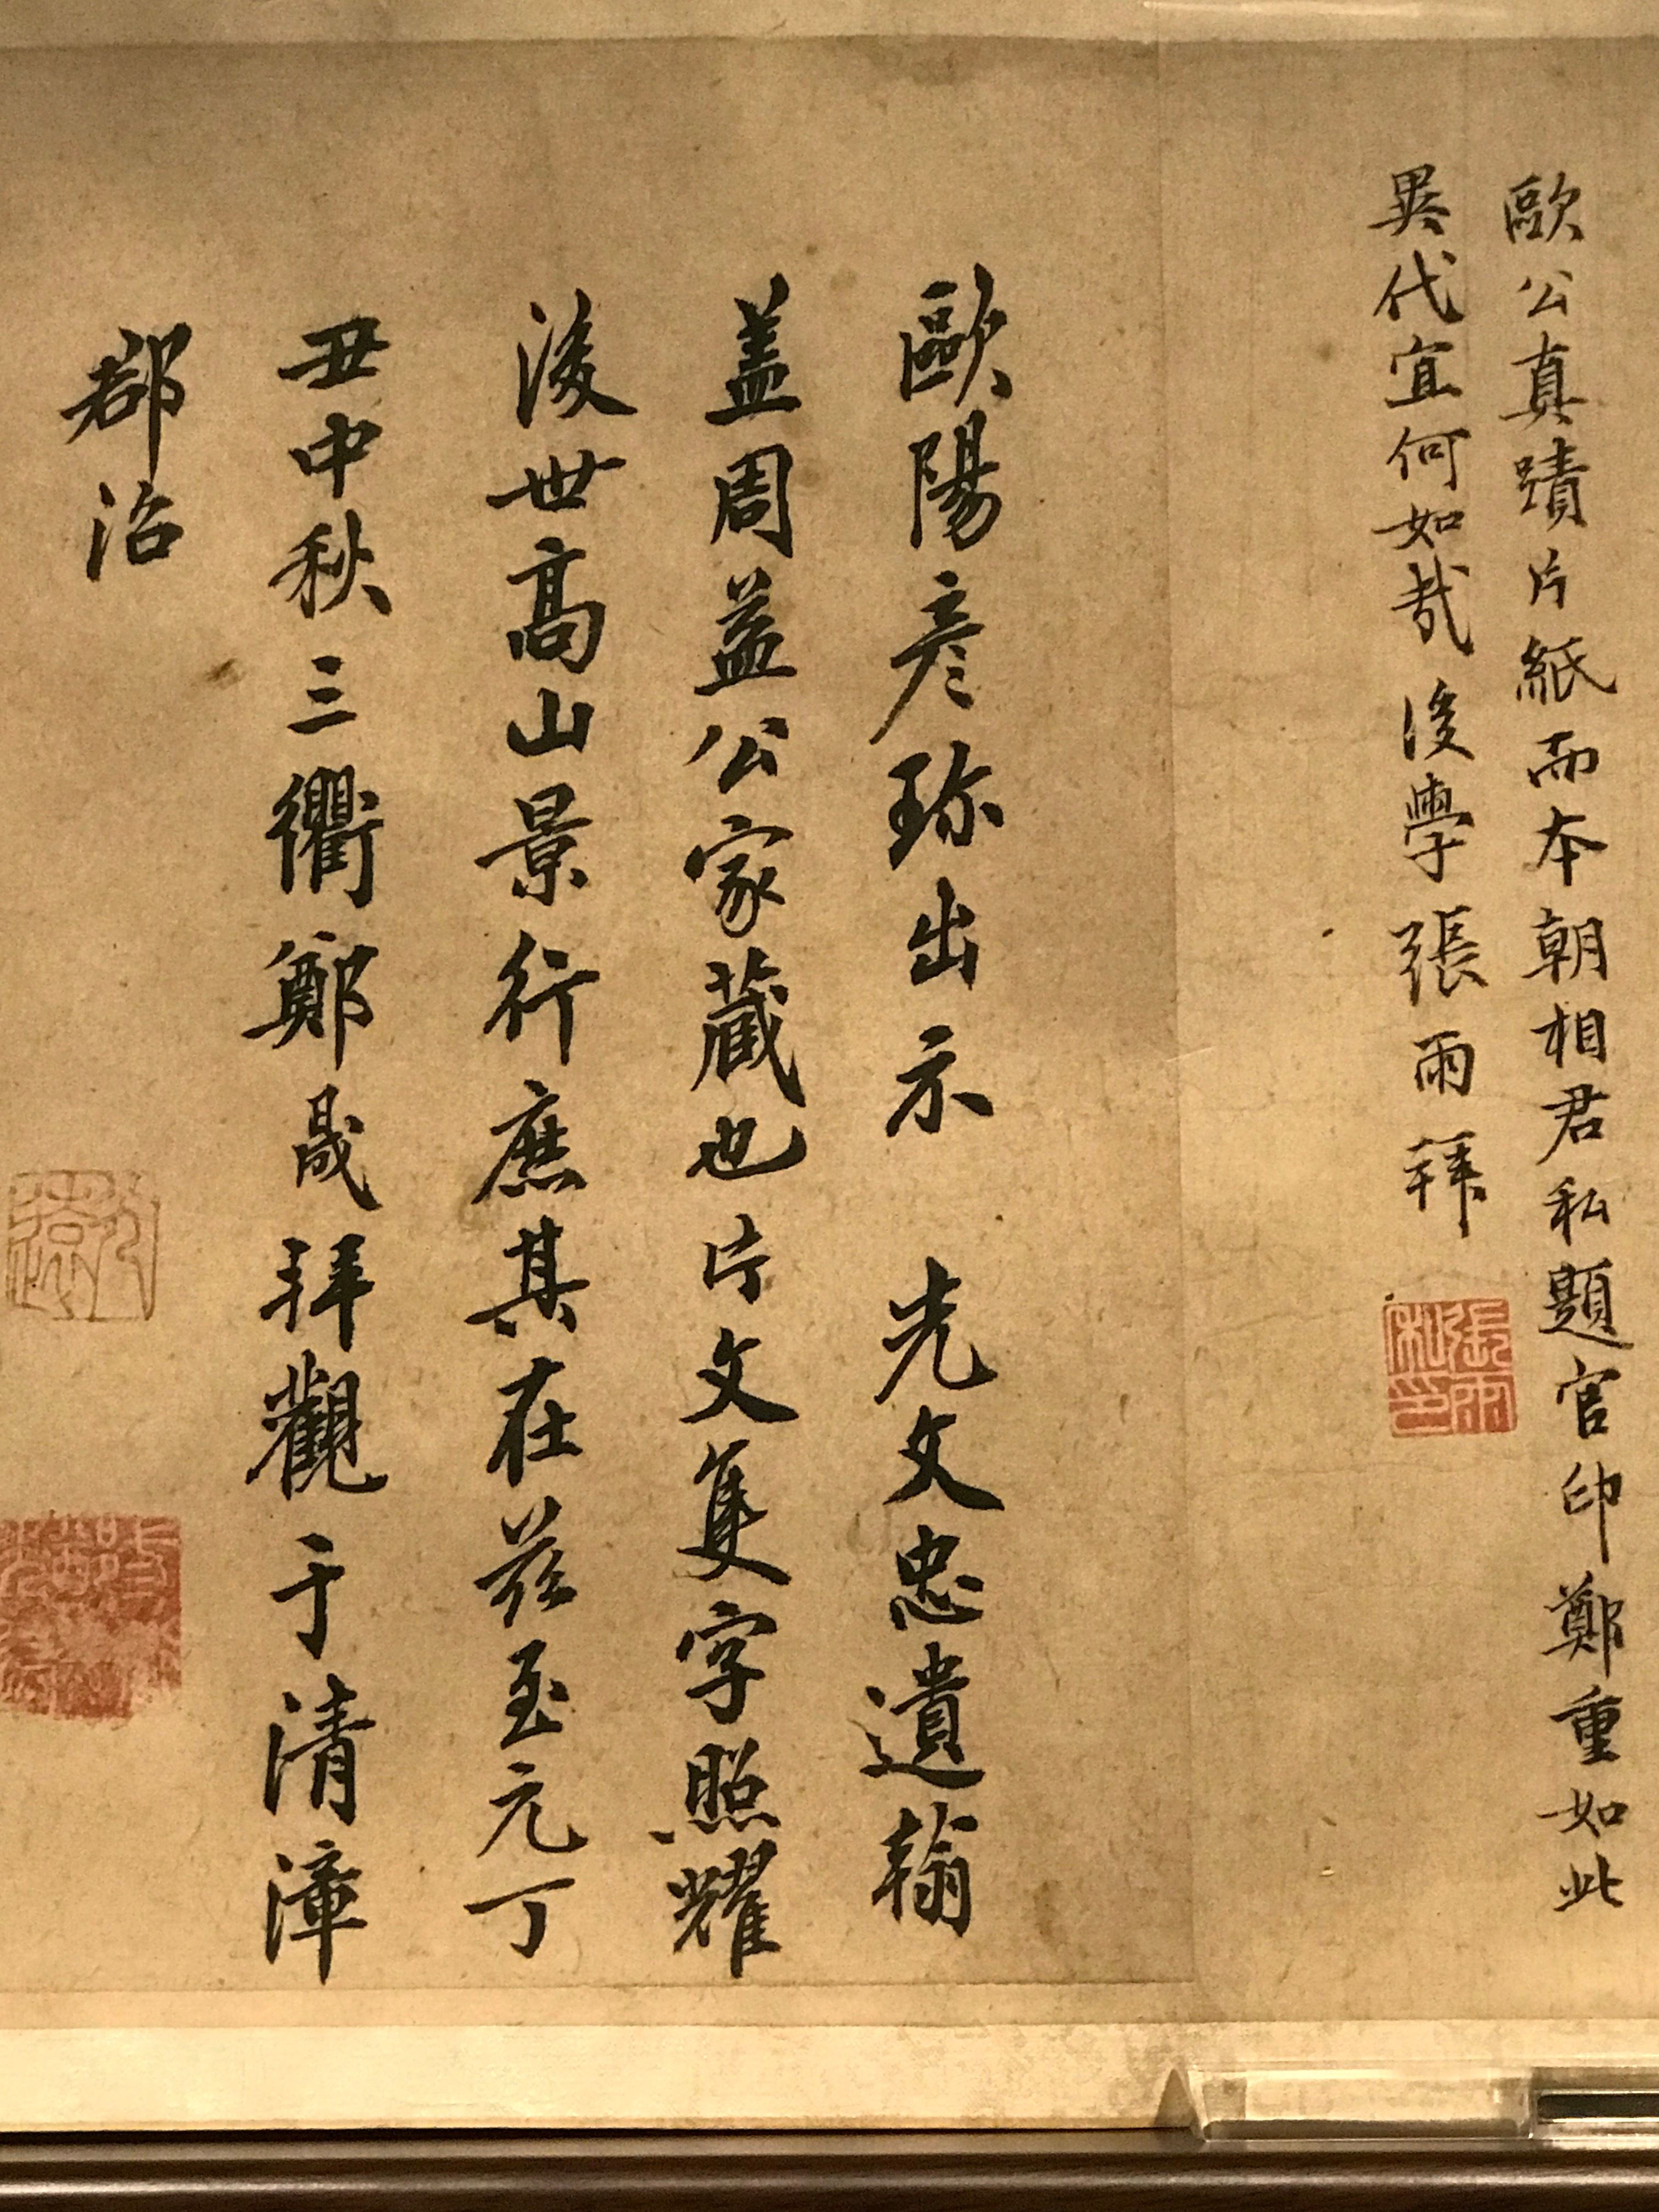 歐公真蹟片紙而本朝相君私題官印鄭重如此
異代宜何如哉後學張雨拜
張雨私印
歐陽彥珎出示 先文忠遺翰
盖周益公家藏也片文隻字照耀
後世高山景行庶其在兹至元丁
丑中秋三衢鄭晟拜觀于清漳
郡治